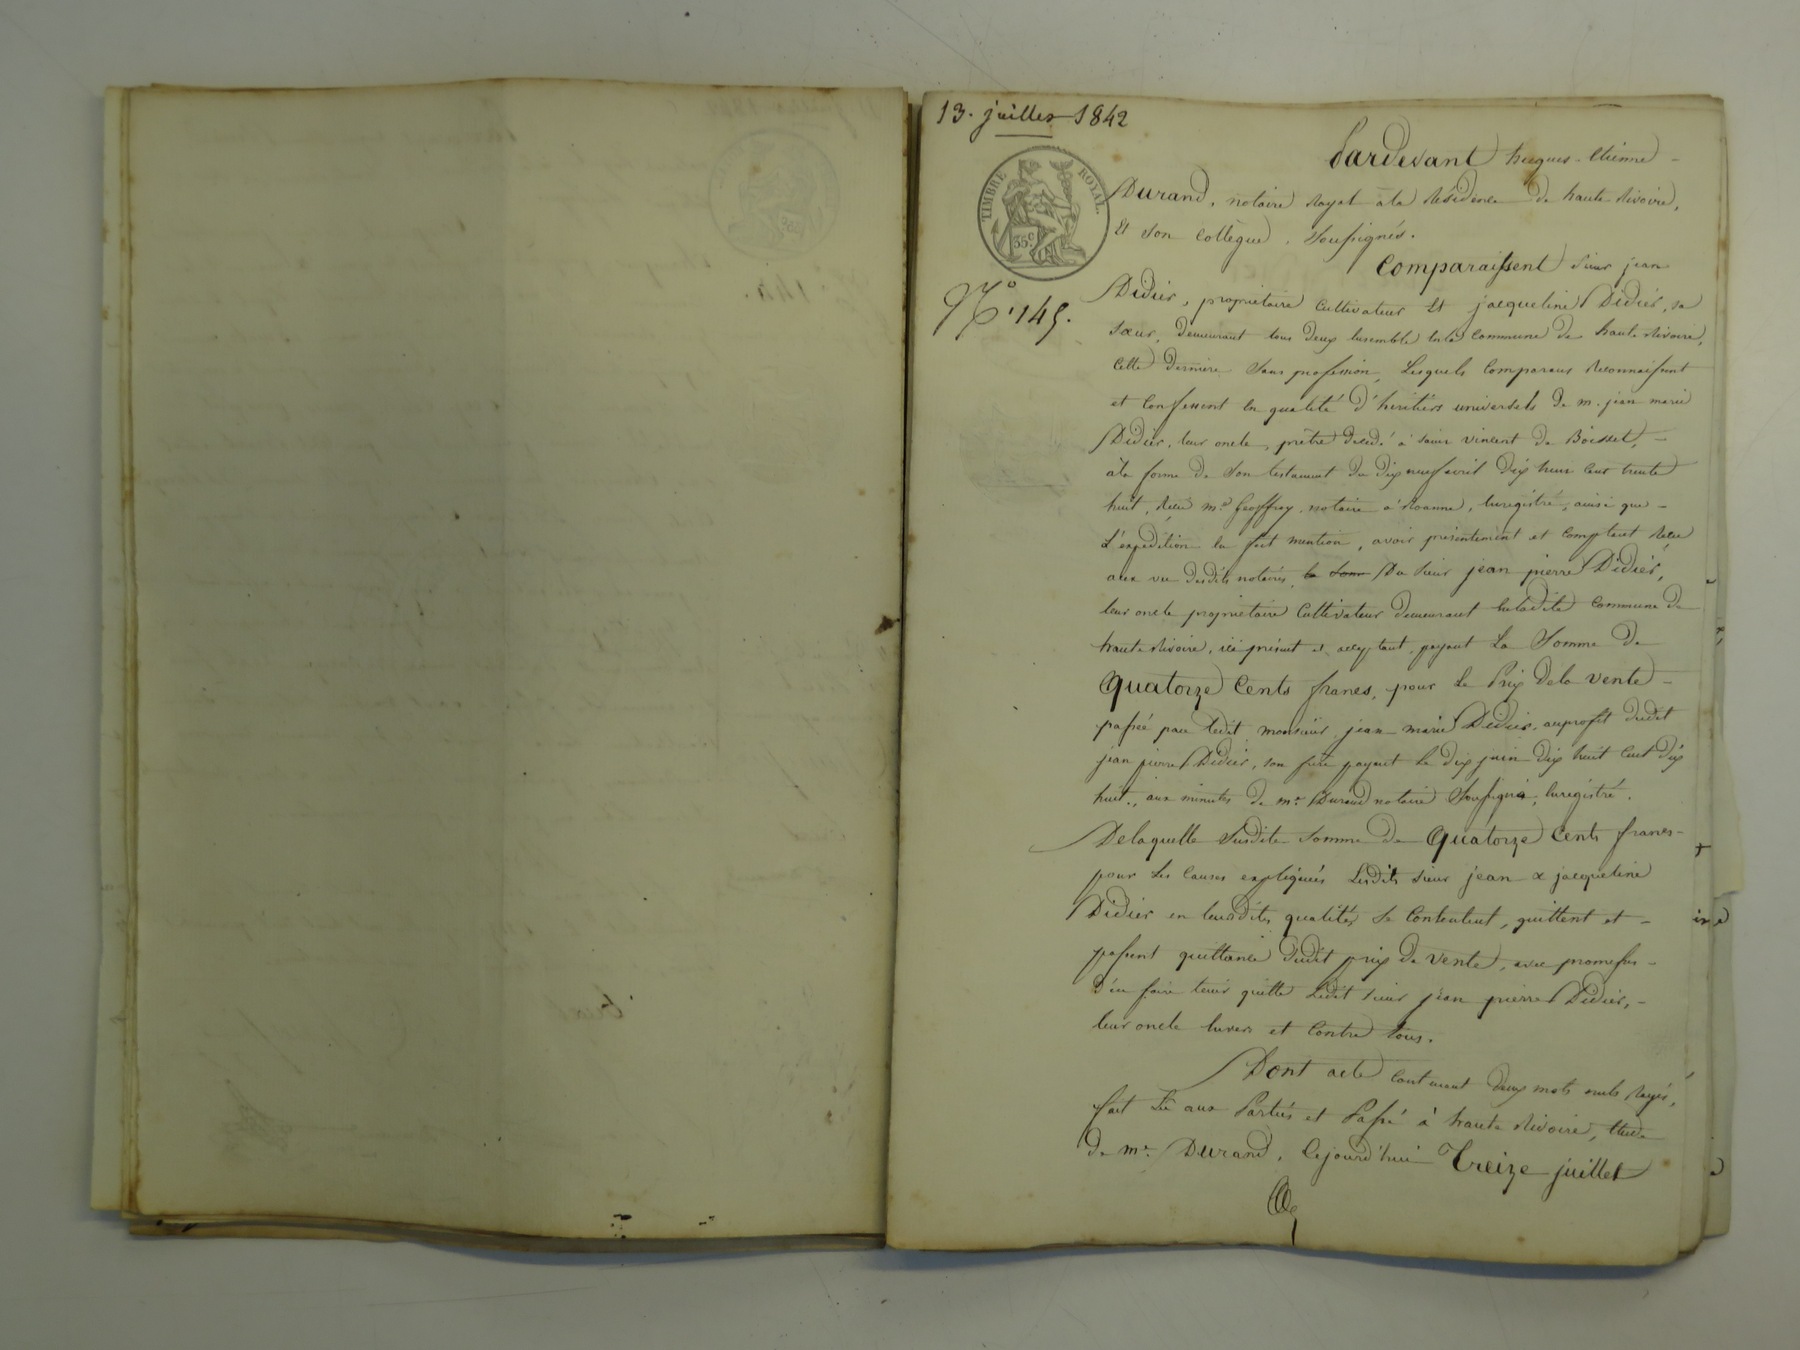 13. juillet 1842
TIMBRE ROYAL.
35 c
N° 145.
Pardevant hugues-Etienne -
Durand, notaire Royal à la Résidence de haute Rivoire,
Et son Collègue, soussignés.
Comparaissent Sieur jean
Didier, propriétaire Cultivateur Et jacqueline Didier, sa
sœur, demeurant tous deux Ensemble En la Commune de haute Rivoire,
Cette dernière Sans profession, Lesquels Comparans Reconnaissent
et Confessent En qualité d'héritiers universels de m. jean marie
Didier, leur oncle, prêtre décédé à saint vincent de Boisset, -
à la forme de Son testament du dix neuf avril dix huit Cent trente
huit, Reçu me Geoffray, notaire à Roanne, Enregistré, ainsi que -
L'expédition En fait mention, avoir présentement et Comptant Reçu
aux vu desdits notaires, la Somme Du Sieur jean pierre Didier,
leur oncle propriétaire Cultivateur demeurant En ladite Commune de
haute Rivoire, ici présent et acceptant, payant La Somme de
Quatorze Cents francs, pour Le Prix de la vente -
passée par Ledit monsieur jean marie Didier, au profit dudit
jean pierre Didier, son frère payant le dix juin dix huit Cent dix
huit, aux minutes de me Durand notaire Soussigné, Enregistré.
De laquelle Susdite Somme de Quatorze Cents francs -
pour Les Causes expliquées Lesdits Sieur jean & jacqueline
Didier en leursdites qualités Se Contentent, quittent et -
passent quittance dudit prix de vente, avec promesses -
d'en faire tenir quitte Ledit Sieur jean pierre Didier, -
leur oncle Envers et Contre tous.
Dont acte Contenant deux mots nuls Rayés,
fait Lu aux Parties et Passé à haute Rivoire, Etude
de me Durand, Cejourd'hui Treize juillet